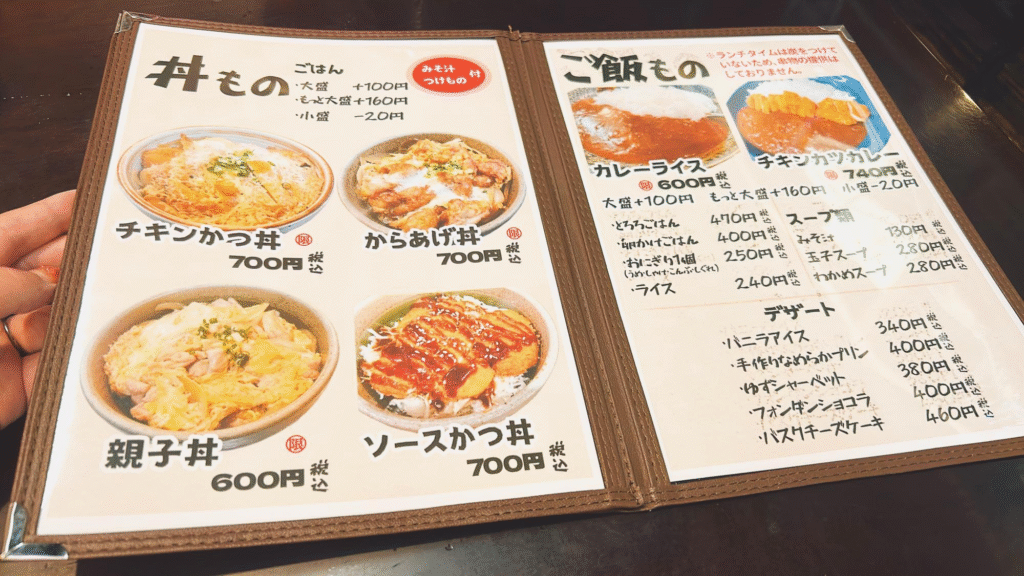 丼もの
ごはん
・大盛 +100円
・もっと大盛+160円
・小盛 -20円
みそ汁
つけもの 付
チキンかつ丼 限
700円 税込
からあげ丼 限
700円 税込
親子丼 限
600円 税込
ソースかつ丼
700円 税込
ご飯もの
※ランチタイムは炭をつけて
いないため、串物の提供は
しておりません。
カレーライス
限 600円 税込
チキンカツカレー
限 740円 税込
大盛+100円 もっと大盛+160円 小盛-20円
・とろろごはん 470円 税込
・卵かけごはん 400円 税込
・おにぎり1個 250円 税込
(うめ・しゃけ・こんぶ・しぐれ)
・ライス 240円 税込
スープ類
みそ汁 130円 税込
玉子スープ 280円 税込
わかめスープ 280円 税込
デザート
・バニラアイス 340円 税込
・手作りなめらかプリン 400円 税込
・ゆずシャーベット 380円 税込
・フォンダンショコラ 400円 税込
・バスクチーズケーキ 460円 税込